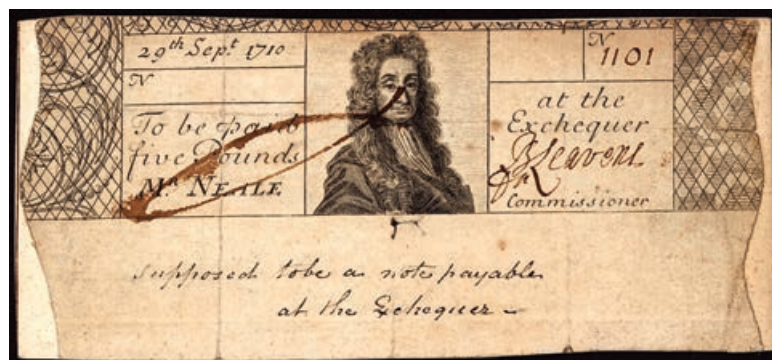 29th Sept. 1710
N
To be paid
five Pounds
Mr NEALE
N
1101
at the
Exchequer
Commissioner
supposed to be a note payable
at the Exchequer -